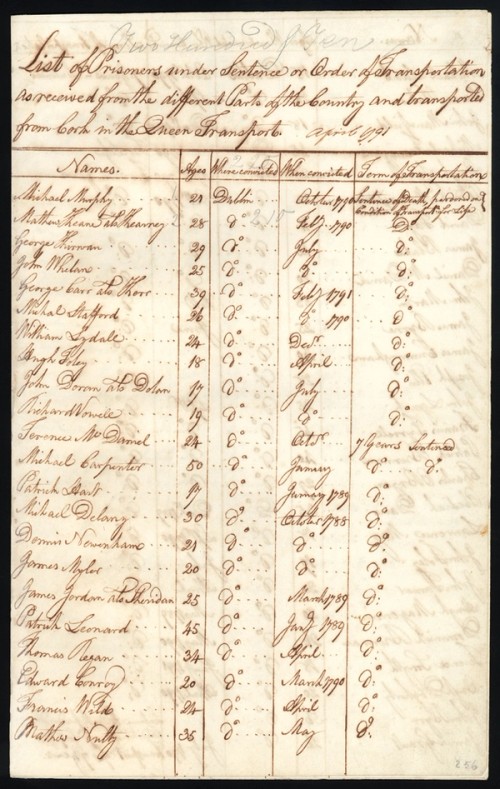 Two Hundred & Ten
List of Prisoners under Sentence or Order of Transportation
as received from the different Parts of the Country and transported
from Cork in the Queen Transport. April 1791
Names. Ages Where convicted When convicted Term of Transportation
Michael Murphy 21 Dublin October 1790 Sentence of Death, pardoned on
Condition of transpn. for Life
Mathew Keane als Kearney 28 do 210 Feby 1790 do
George Kirwan 29 do July do
John Whelan 25 do do do
George Carr als Kerr 39 do Feby 1791 do
Michal Stafford 26 do do 1790 do
William Lydale 24 do Decr do
Hugh Foley 18 do April do
John Doran als Dolan 17 do July do
Richard Vowell 19 do do do
Terence Mc Daniel 24 do Octr 7 Years Sentence
Michael Carpenter 50 do January do do
Patrick Hart 17 do January 1789 do
Michael Delany 30 do October 1788 do
Dennis Newenham 21 do do do
James Myler 20 do do do
James Jordan als Sheridan 25 do March 1789 do
Patrick Leonard 45 do Jany 1789 do
Thomas Regan 34 do April do
Edward Conroy 20 do March 1790 do
Francis Wild 24 do April do
Mathew Nulty 35 do May do
256